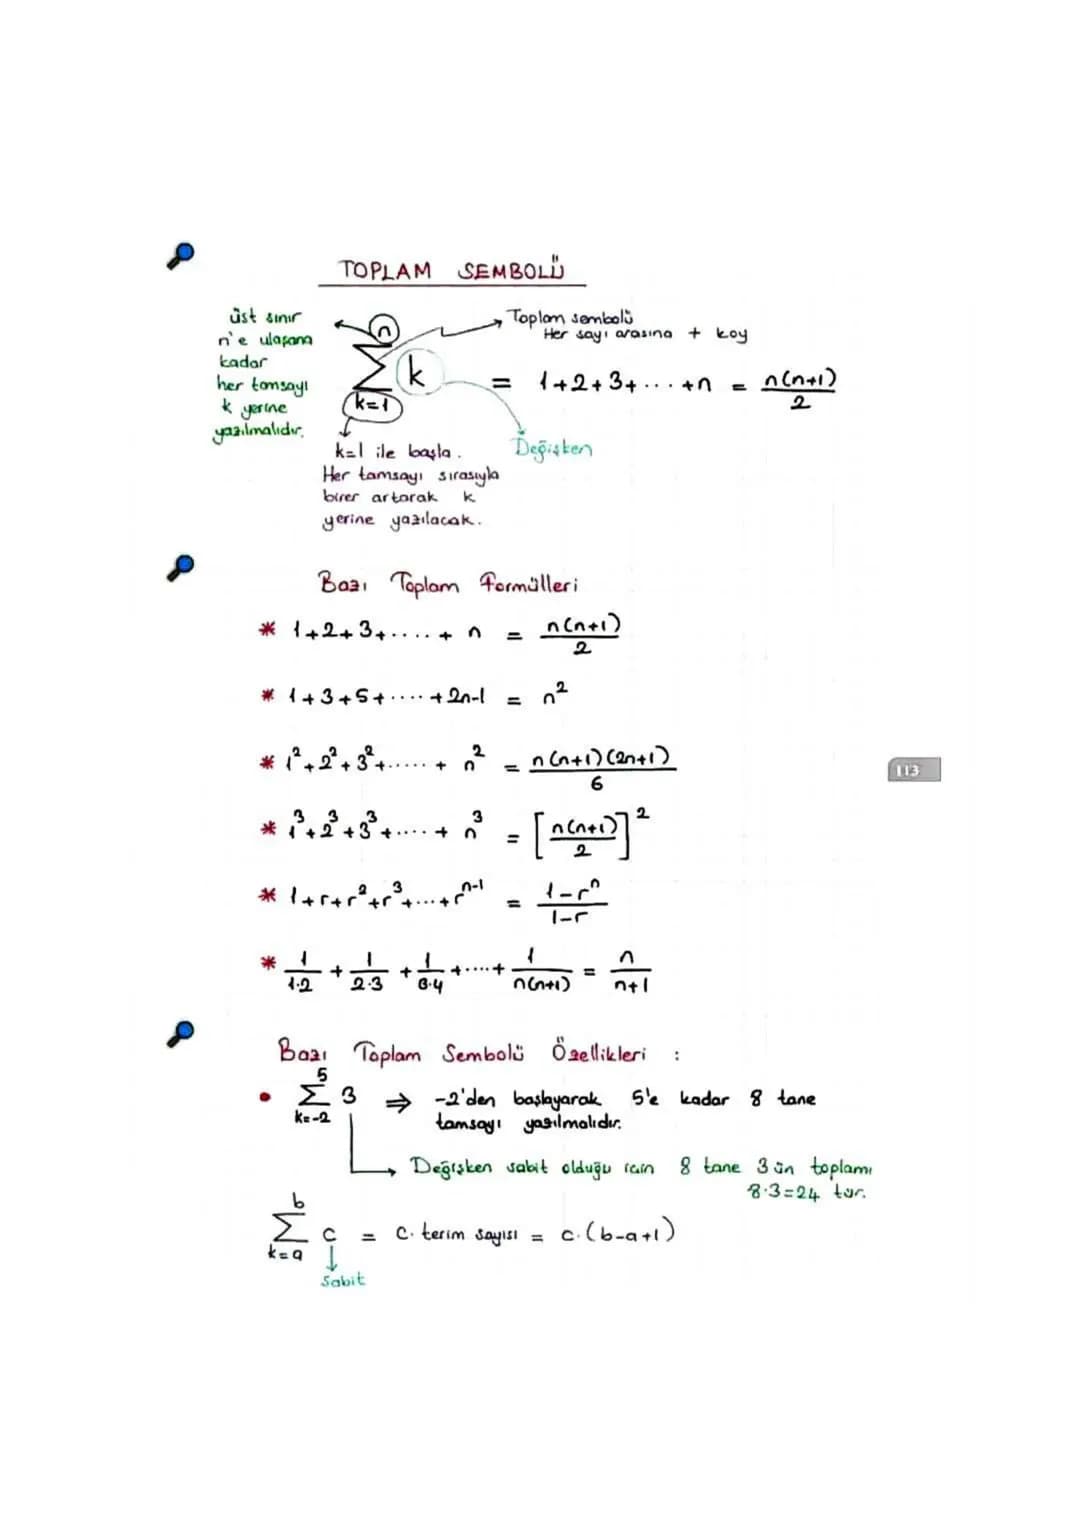 TOPLAM SEMBOLÜ
üst sınır
n'e ulaşana
kadar
her tamsayı
k yerine
yazılmalıdır.
n
∑ k
k=1
Toplam sembolü
Her sayı arasına + koy
= 1+2+3+...+n = n(n+1)/2
Değişken
k=1 ile başla.
Her tamsayı sırasıyla
birer artarak k
yerine yazılacak.
Bazı Toplam Formülleri
* 1+2+3+....+ n = n(n+1)/2
* 1+3+5+....+2n-1 = n²
* 1²+2²+3²+.....+ n² = n(n+1)(2n+1)/6
* 1³+2³+3³+....+ n³ = [n(n+1)/2]²
* 1+r+r²+r³+...+rⁿ⁻¹ = 1-rⁿ/1-r
* 1/1·2 + 1/2·3 + 1/3·4 +....+ 1/n(n+1) = n/n+1
113
Bazı Toplam Sembolü Özellikleri :
5
• ∑ 3 ⇒ -2'den başlayarak 5'e kadar 8 tane
k=-2
tamsayı yazılmalıdır.
Değişken sabit olduğu için 8 tane 3ün toplamı
8·3=24 tür.
b
∑ c = c. terim sayısı = c.(b-a+1)
k=a
Sabit